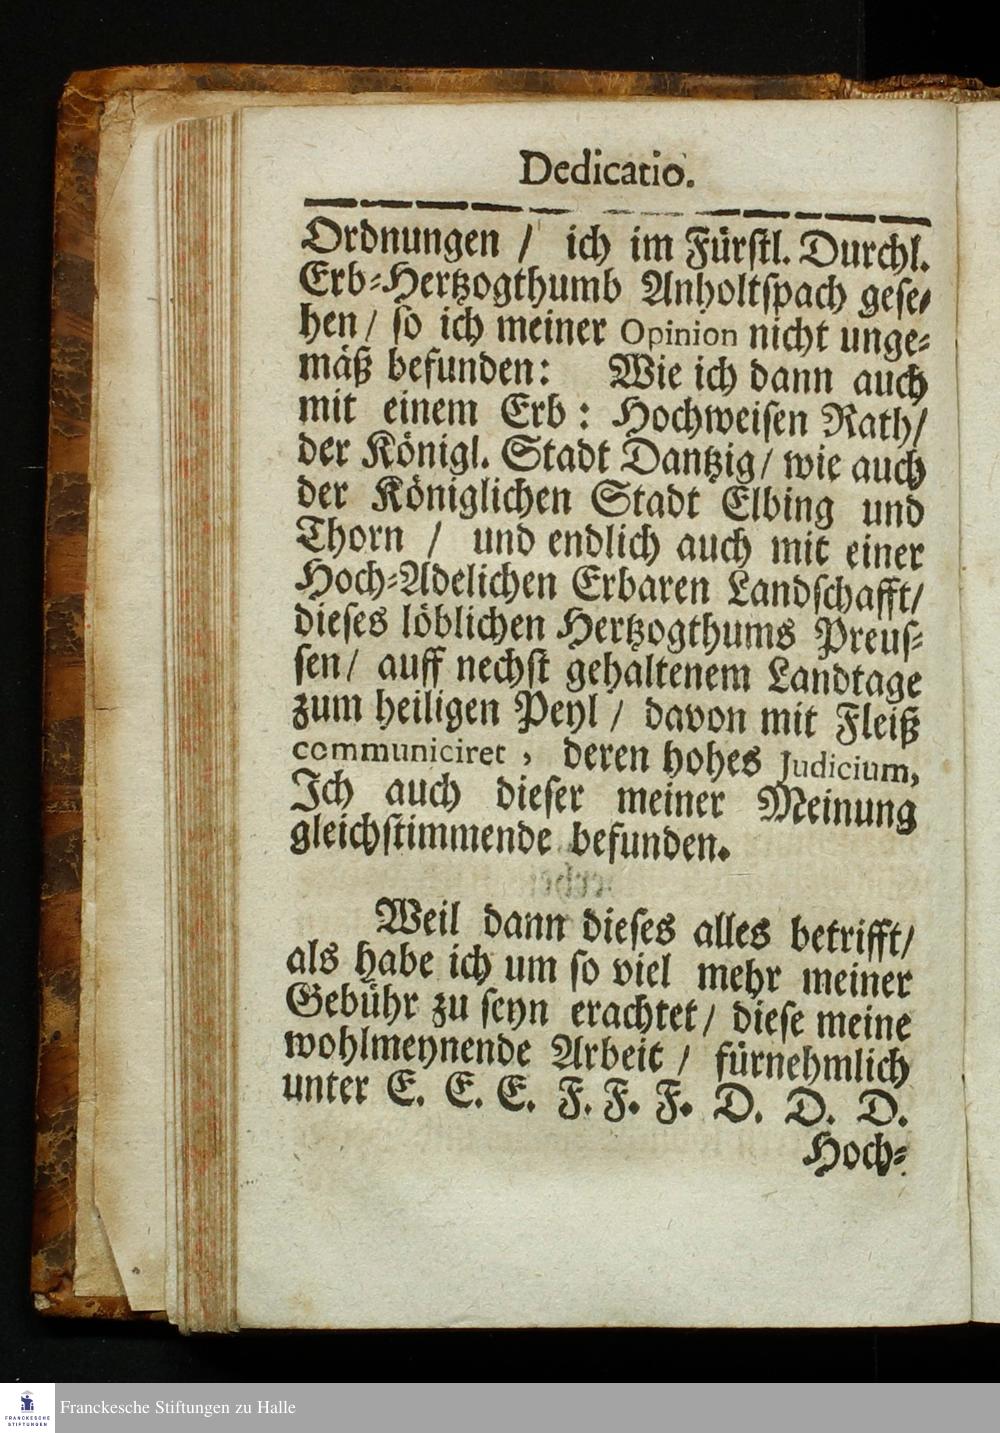 Dedicatio.
Ordnungen / ich im Fürſtl. Durchl.
Erb-Hertzogthumb Anholtſpach geſe-
hen / ſo ich meiner Opinion nicht unge-
mäß befunden: Wie ich dann auch
mit einem Erb: Hochweiſen Rath/
der Königl. Stadt Dantzig / wie auch
der Königlichen Stadt Elbing und
Thorn / und endlich auch mit einer
Hoch-Adelichen Erbaren Landſchafft/
dieſes löblichen Hertzogthums Preuſ-
ſen / auff nechſt gehaltenem Landtage
zum heiligen Peyl / davon mit Fleiß
communiciret, deren hohes Judicium,
Ich auch dieſer meiner Meinung
gleichſtimmende befunden.
Weil dann dieſes alles betrifft/
als habe ich um ſo viel mehr meiner
Gebühr zu ſeyn erachtet / dieſe meine
wohlmeynende Arbeit / fürnehmlich
unter E. E. E. F. F. F. D. D. D.
Hoch-
FRANCKESCHE
STIFTUNGEN
Franckesche Stiftungen zu Halle